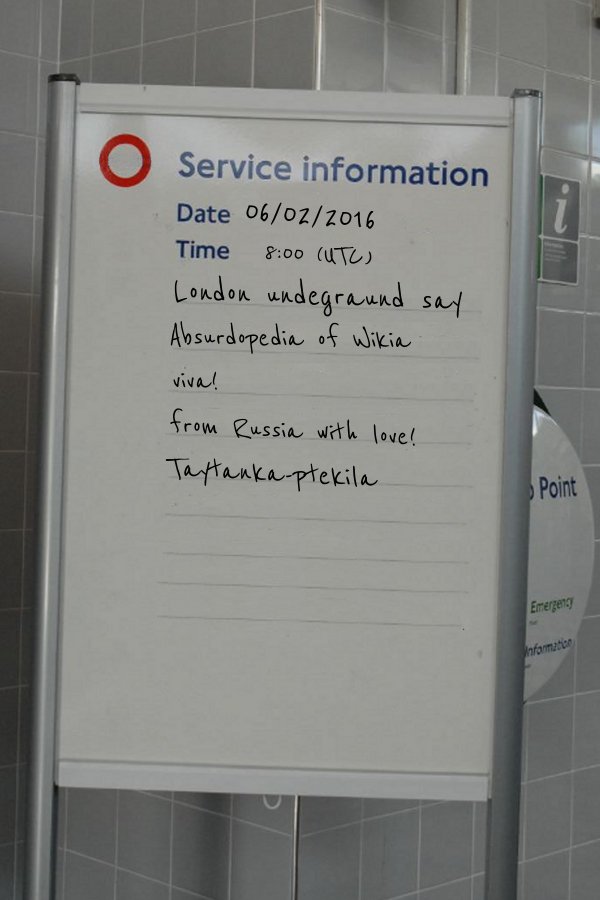 Service information
Date 06/02/2016
Time 8:00 (UTC)
London undegraund say
Absurdopedia of Wikia
viva!
from Russia with love!
Taytanka-ptekila
i
Point
Emergency
Information